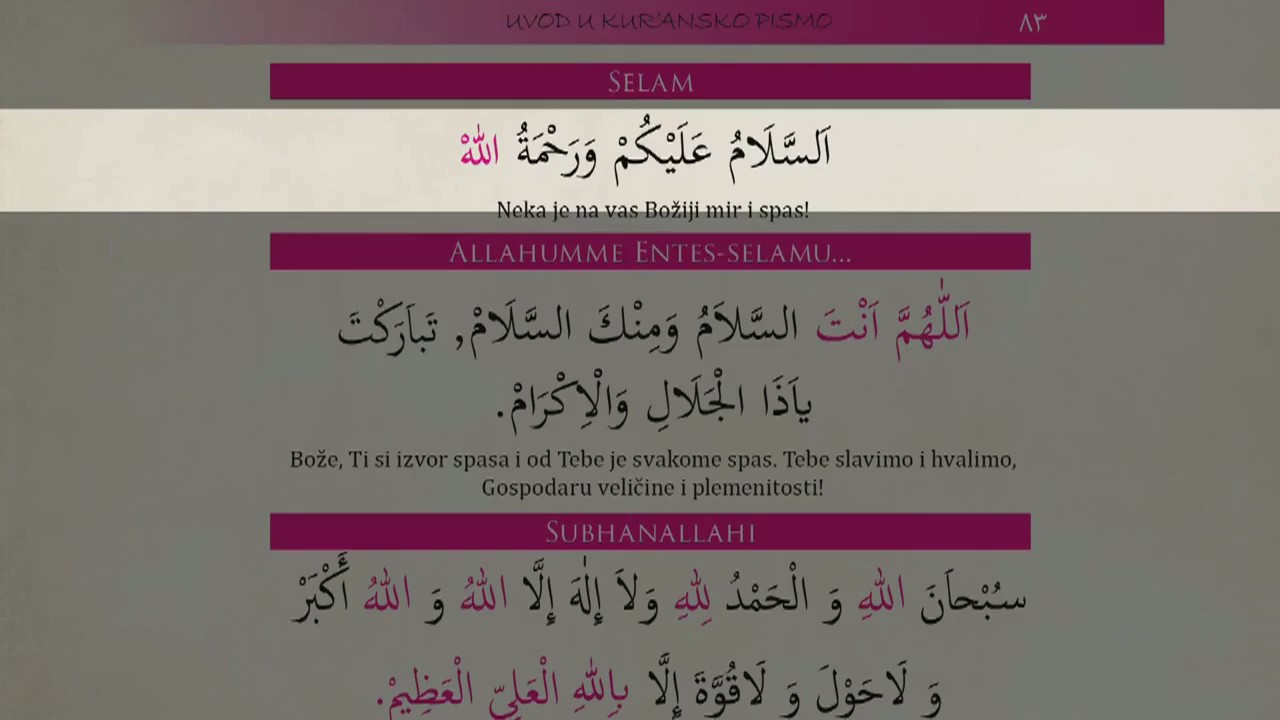 UVOD U KUR'ANSKO PISMO ٨٣
SELAM
اَلسَّلَامُ عَلَيْكُمْ وَرَحْمَةُ اللّٰهْ
Neka je na vas Božiji mir i spas!
ALLAHUMME ENTES-SELAMU...
اَللّٰهُمَّ اَنْتَ السَّلاَمُ وَمِنْكَ السَّلَامْ, تَبَارَكْتَ
يَاذَا الْجَلَالِ وَالْاِكْرَامْ.
Bože, Ti si izvor spasa i od Tebe je svakome spas. Tebe slavimo i hvalimo,
Gospodaru veličine i plemenitosti!
SUBHANALLAHI
سُبْحَانَ اللّٰهِ وَ الْحَمْدُ لِلّٰهِ وَلاَ إِلٰهَ إِلَّا اللّٰهُ وَ اللّٰهُ أَكْبَرْ
وَ لَاحَوْلَ وَ لَاقُوَّةَ إِلَّا بِاللّٰهِ الْعَلِىِّ الْعَظِيمْ.